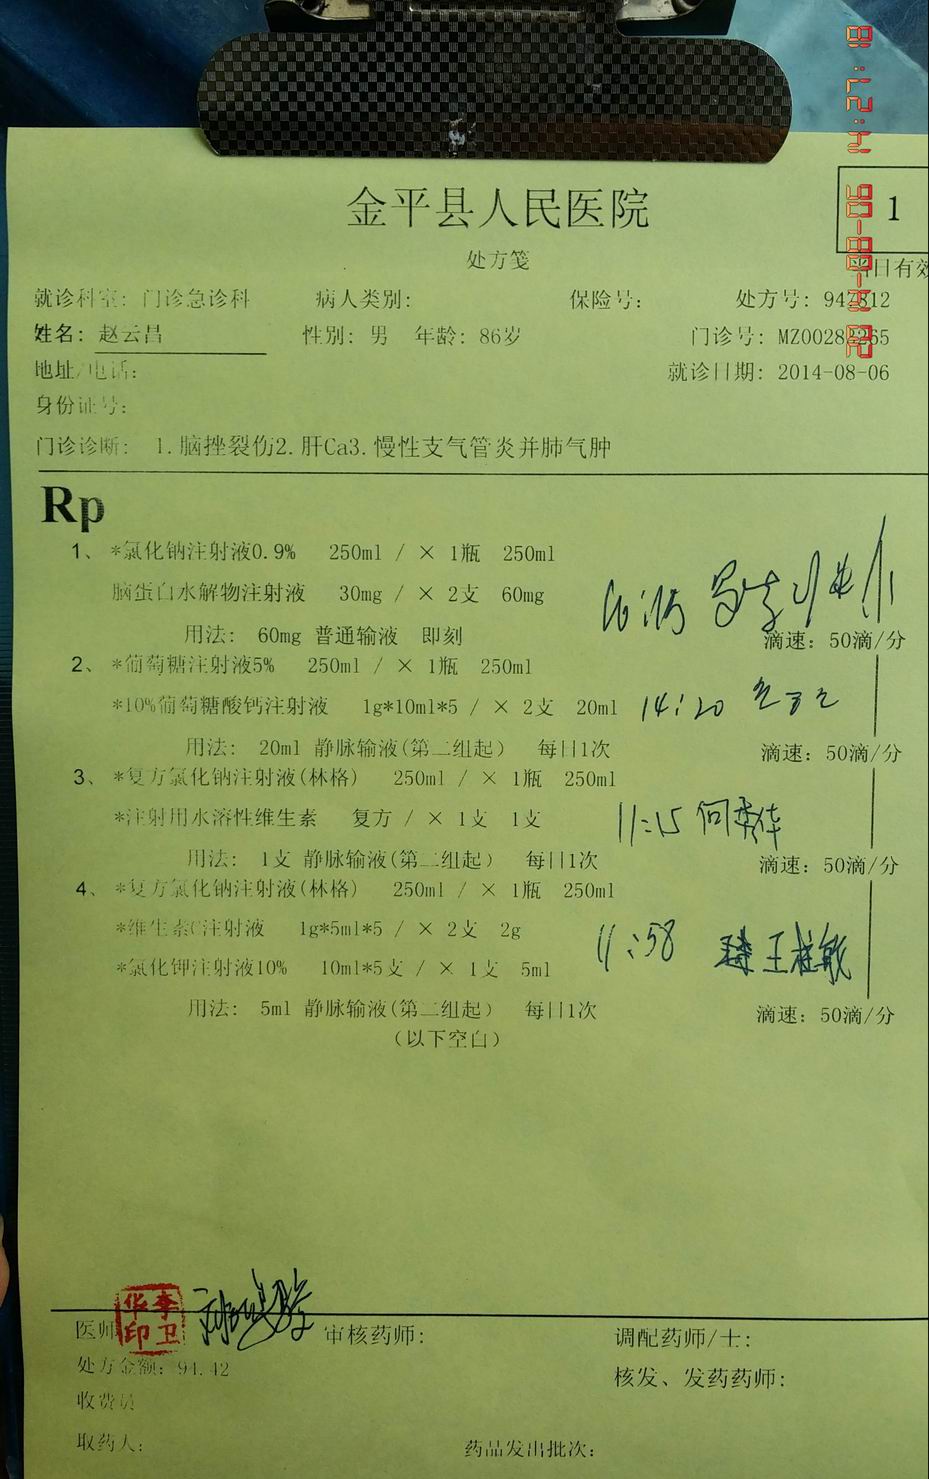 金平县人民医院
1
处方笺
当日有效
就诊科室: 门诊急诊科 病人类别: 保险号: 处方号: 947812
姓名: 赵云昌 性别: 男 年龄: 86岁 门诊号:
地址/电话: 就诊日期: 2014-08-06
身份证号:
门诊诊断: 1.脑挫裂伤2.肝Ca3.慢性支气管炎并肺气肿
Rp
1、 *氯化钠注射液0.9% 250ml / × 1瓶 250ml
脑蛋白水解物注射液 30mg / × 2支 60mg
用法: 60mg 普通输液 即刻 滴速: 50滴/分
2、 *葡萄糖注射液5% 250ml / × 1瓶 250ml
*10%葡萄糖酸钙注射液 1g*10ml*5 / × 2支 20ml 14:20
用法: 20ml 静脉输液(第二组起) 每日1次 滴速: 50滴/分
3、 *复方氯化钠注射液(林格) 250ml / × 1瓶 250ml
*注射用水溶性维生素 复方 / × 1支 1支 11:15
用法: 1支 静脉输液(第二组起) 每日1次 滴速: 50滴/分
4、 *复方氯化钠注射液(林格) 250ml / × 1瓶 250ml
*维生素C注射液 1g*5ml*5 / × 2支 2g 11:58
*氯化钾注射液10% 10ml*5支 / × 1支 5ml
用法: 5ml 静脉输液(第二组起) 每日1次 滴速: 50滴/分
(以下空白)
李卫华印
医师 审核药师: 调配药师/士:
处方金额: 94.42 核发、发药药师:
收费员
取药人: 药品发出批次: